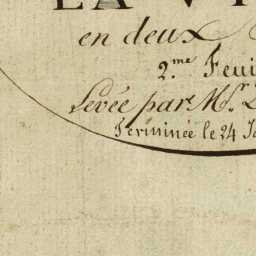 LA V
en deux
2.me Feui
Levée par Mr.
Terminée le 24